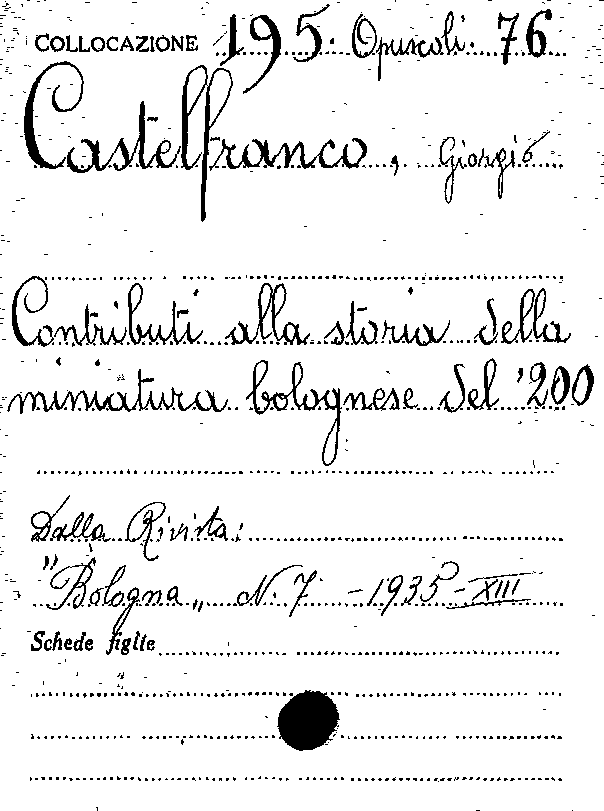 COLLOCAZIONE 195. Opuscoli. 76
Castelfranco, Giorgio
Contributi alla storia della
miniatura bolognese del '200
Dalla Rivista:
"Bologna„ N. 7 - 1935 - XIII
Schede figlie